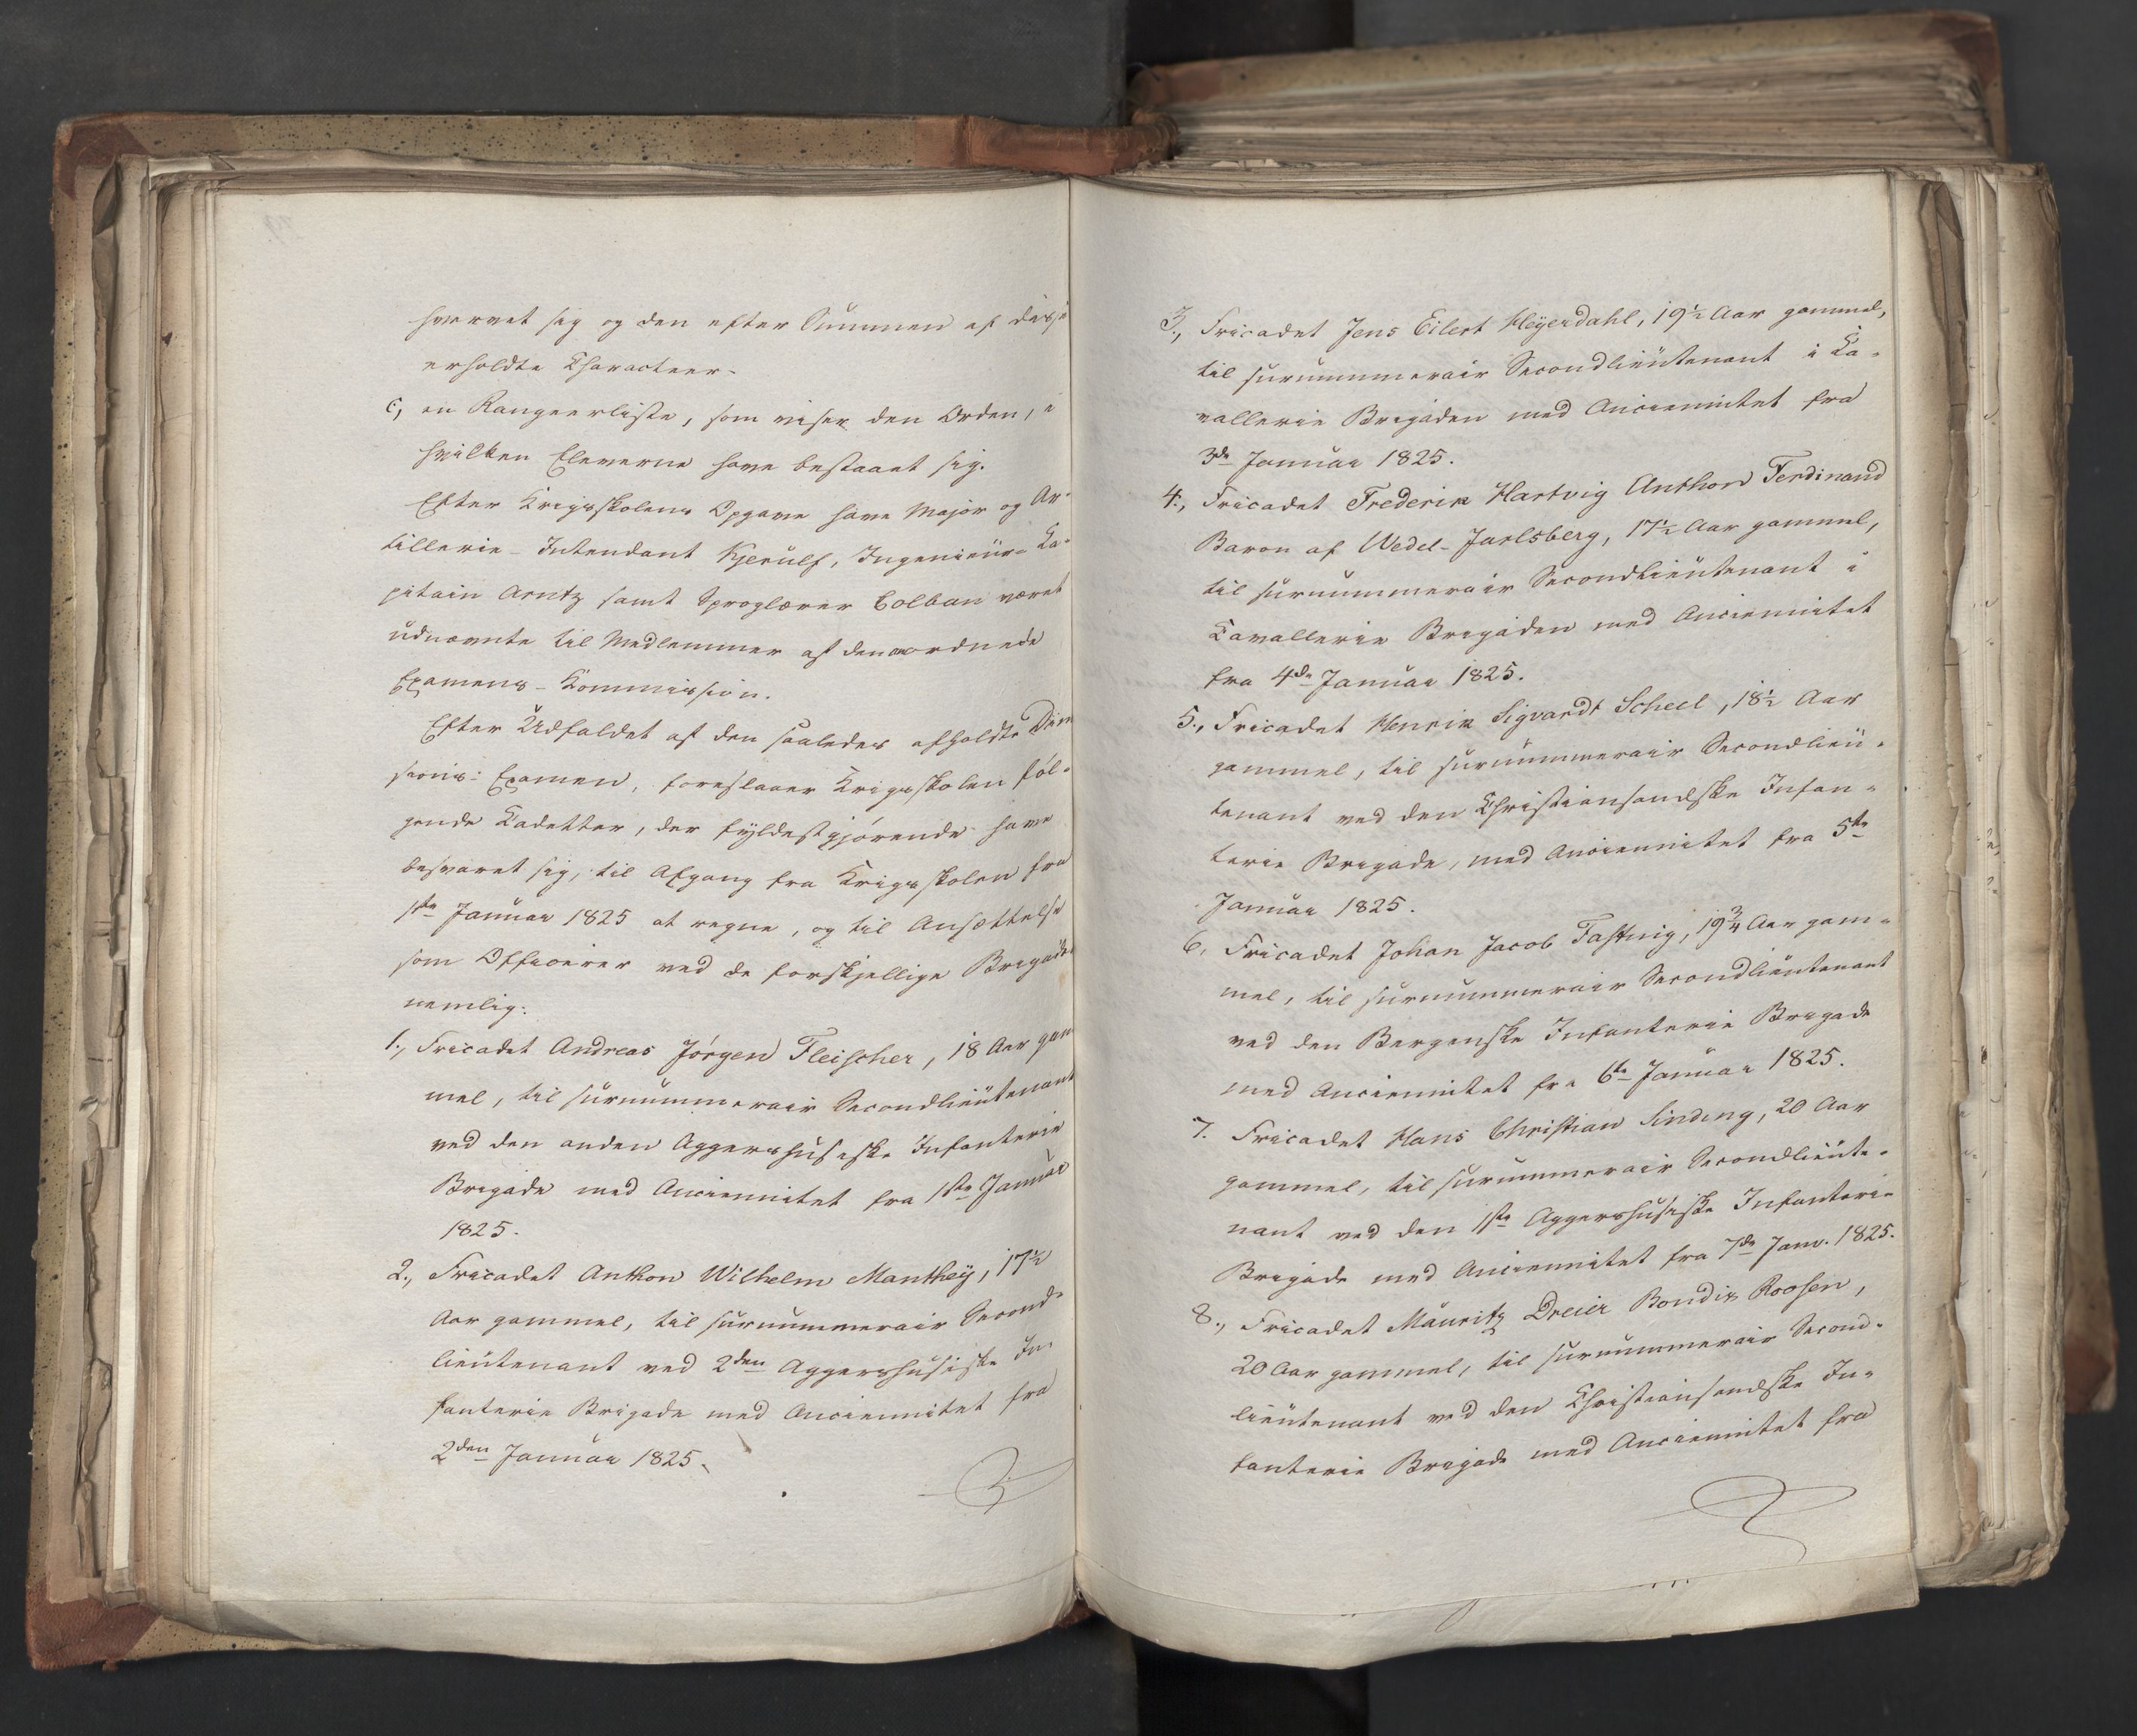 hvervet sig og den efter Summen af disse
erholdte Characteer.
c, en Rangeerliste, som viser den Orden, i
hvilken Eleverne have bestaaet sig.
Efter Krigsskolens Opgave have Major og Ar-
tillerie-Intendant Kjerulf, Ingenieur-Ka-
pitain Arntz samt Sproglærer Colban været
udnævnte til Medlemmer af den anordnede
Examens-Kommission.
Efter Udfaldet af den saaledes afholdte Dim
sions-Examen, foreslaaer Krigsskolen føl-
gende Kadetter, der fyldestgjørende have
besvaret sig, til Afgang fra Krigsskolen fra
1ste Januar 1825 at regne, og til Ansættelse
som Officerer ved de forskjellige Brigader
nemlig:
1., Fricadet Andreas Jörgen Fleischer, 18 Aar gam
mel, til surnummerair Secondlieutenant
ved den anden Aggershusiske Infanterie
Brigade med Anciennitet fra 1ste Januar
1825.
2., Fricadet Anthon Wilhelm Manthey, 17½
Aar gammel, til surnummerair Second-
lieutenant ved 2den Aggershusiske In-
fanterie Brigade med Anciennitet fra
2den Januar 1825.
3., Fricadet Jens Eilert Heyerdahl, 19½ Aar gammel,
til surnummerair Secondlieutenant i Ca-
vallerie Brigaden med Anciennitet fra
3de Januar 1825.
4., Fricadet Frederik Hartvig Anthon Ferdinand
Baron af Wedel-Jarlsberg, 17½ Aar gammel,
til surnummerair Secondlieutenant i
Cavallerie Brigaden med Anciennitet
fra 4de Januar 1825.
5., Fricadet Henrik Sigvardt Scheel, 18½ Aar
gammel, til surnummerair Secondlieu-
tenant ved den Christiansandske Infan-
terie Brigade, med Anciennitet fra 5te
Januar 1825.
6, Fricadet Johan Jacob Fasting, 19¾ Aar gam-
mel, til surnummerair Secondlieutenant
ved den Bergenske Infanterie Brigade
med Anciennitet fra 6te Januar 1825.
7. Fricadet Hans Christian Sinding, 20 Aar
gammel, til surnummerair Secondlieute-
nant ved den 1ste Aggershusiske Infanterie
Brigade med Anciennitet fra 7de Janv. 1825.
8., Fricadet Mauritz Dreier Bondix Roosen,
20 Aar gammel, til surnummerair Second-
lieutenant ved den Christiansandske In-
fanterie Brigade med Anciennitet fra